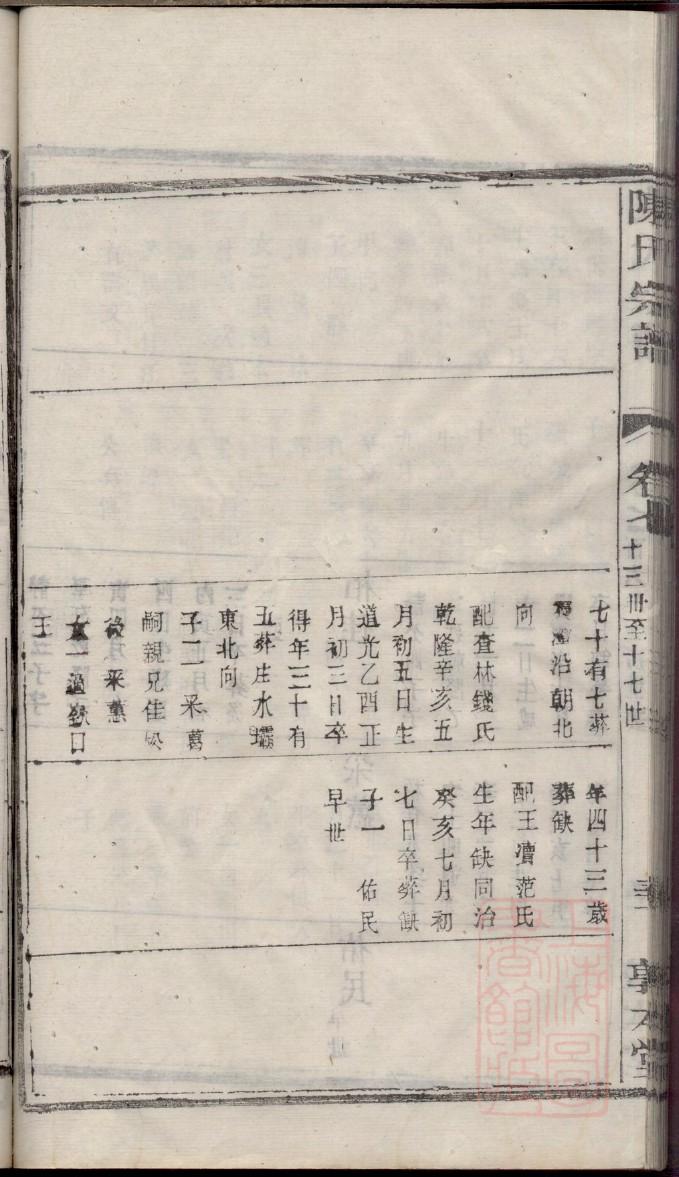 陳氏宗譜
卷七
十三卅至十七世
敦本堂
七十有七葬
沿朝北
向
配查林錢氏
乾隆辛亥五
月初五日生
道光乙酉正
月初三日卒
得年三十有
五葬庄水壩
東北向
子二 采葛
嗣親兄佳
後 采蕙
女一適欽口
王
年四十三歲
葬缺
配王瀆范氏
生年缺同治
癸亥七月初
七日卒葬缺
子一 佑民
早世